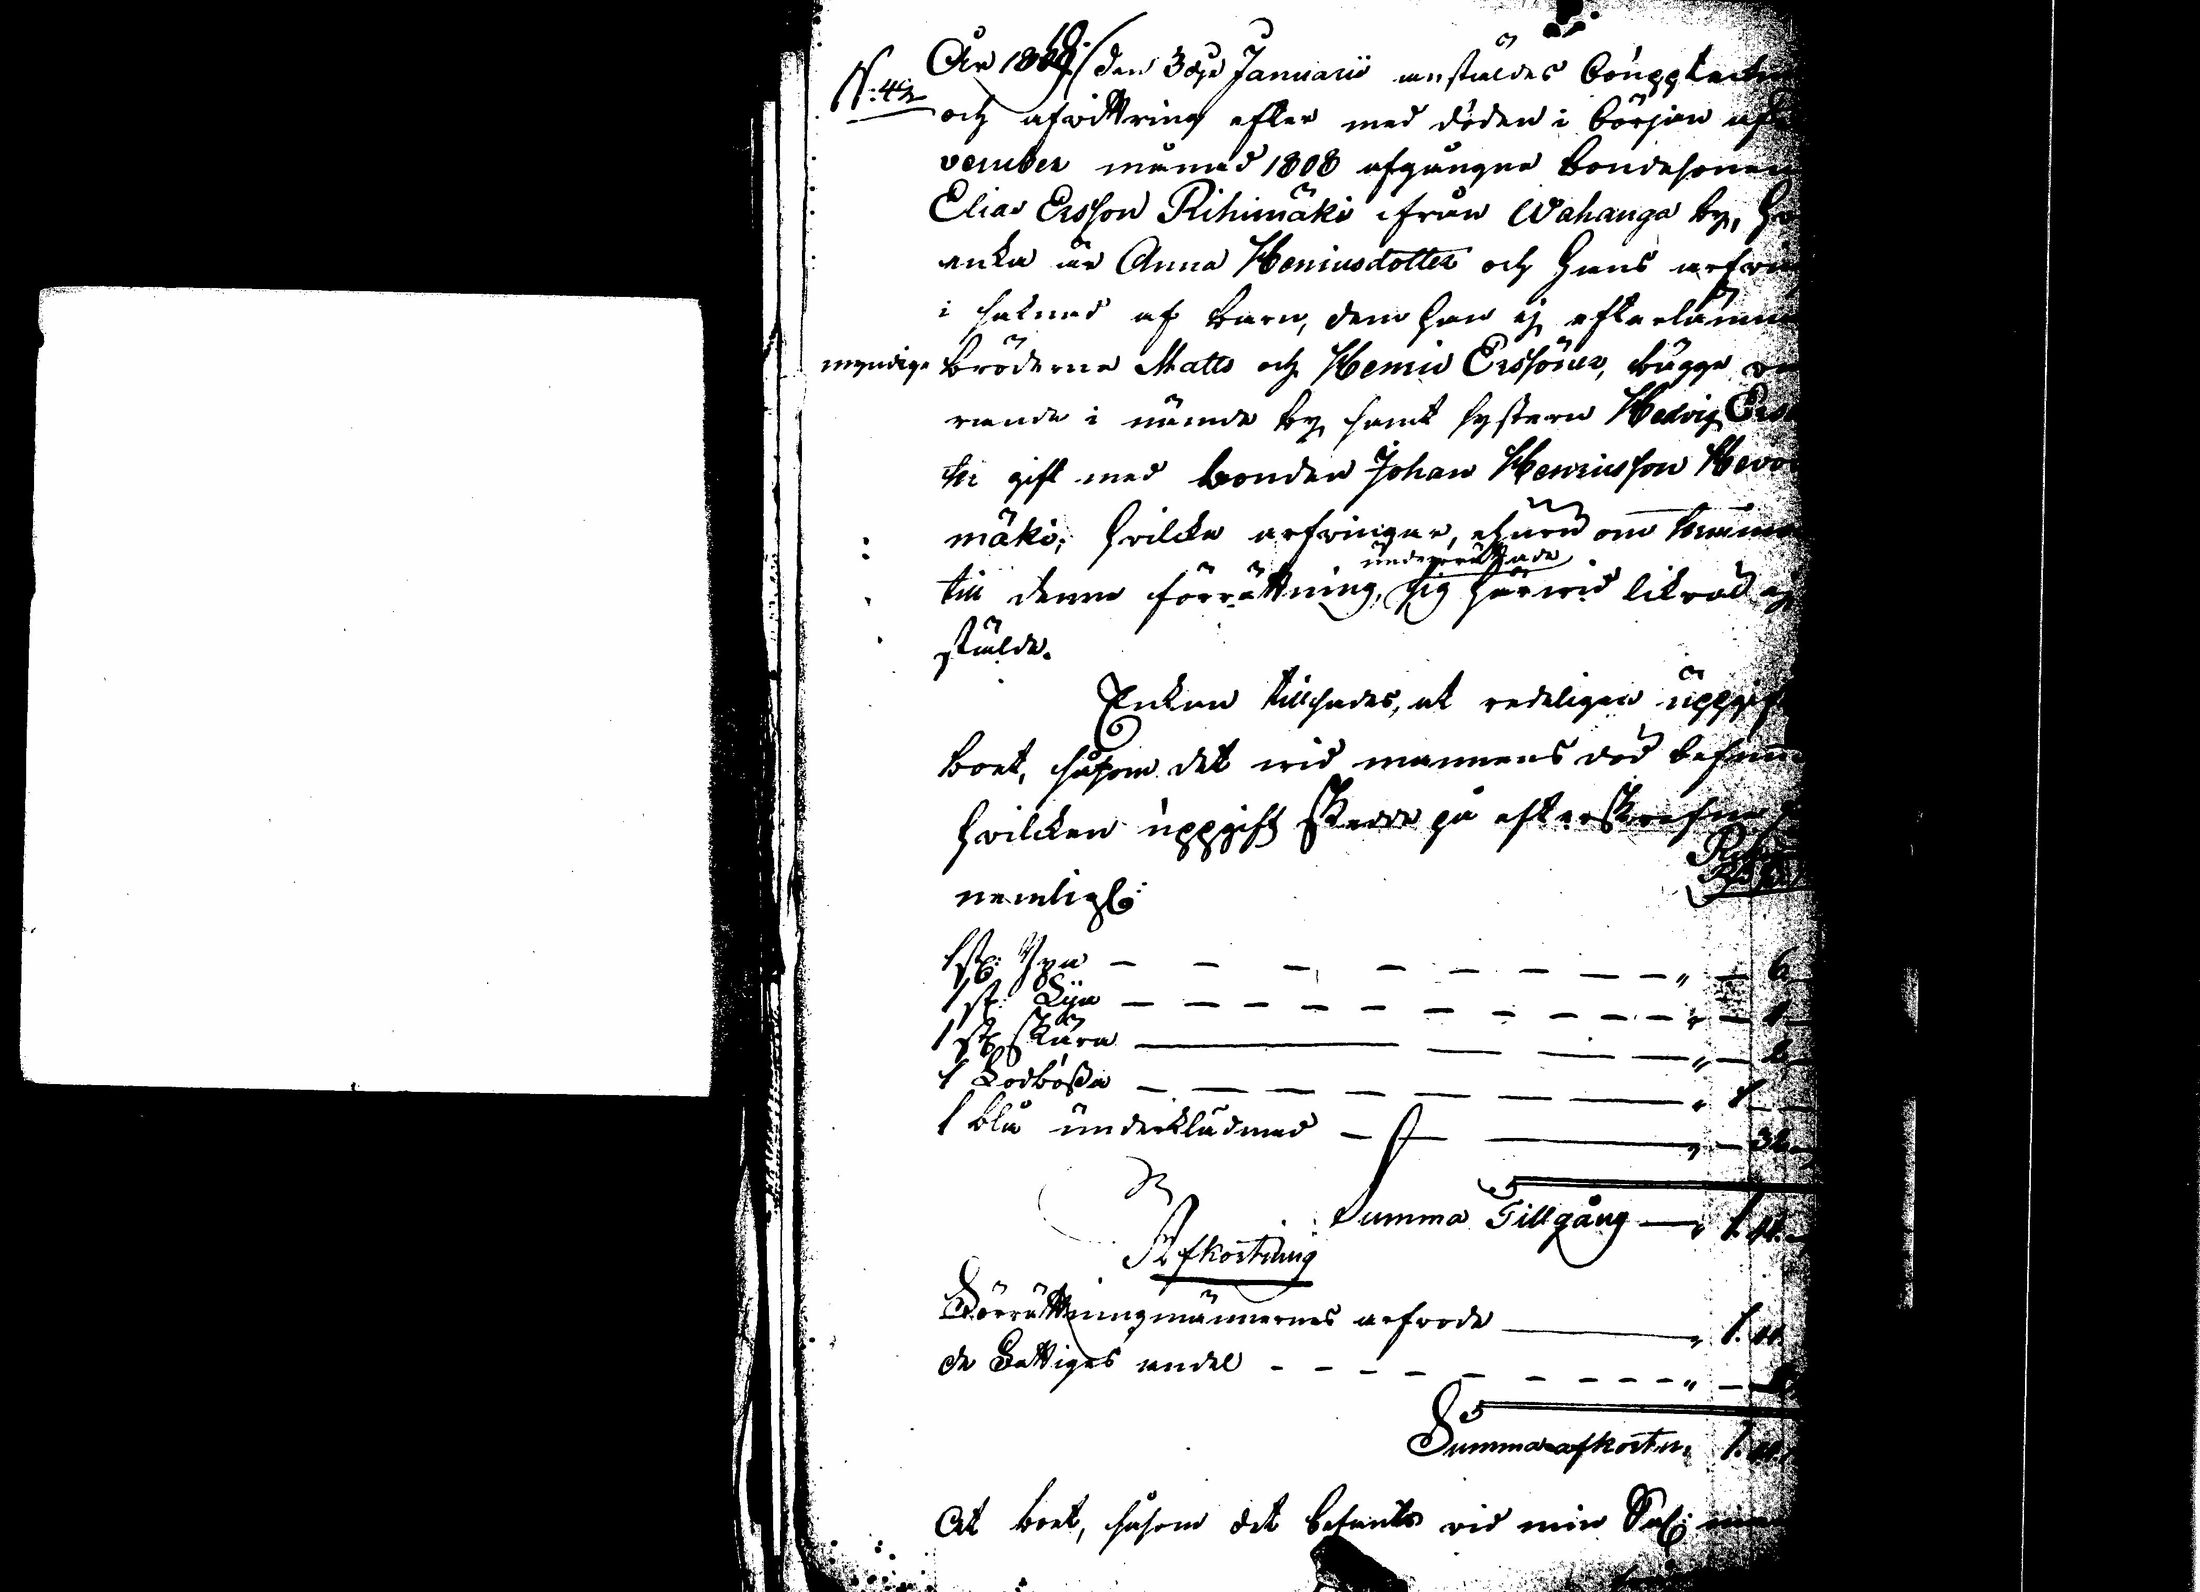 N:42
År 1809 den 3dje Januarii anstäldes bouppteckn
och afvittring efter med döden i början af
vember månad 1808 afgångne bondesonen
Elias Ersson Rihimäki ifrån Wahanga by,
enka är Anna Henricsdotter och hans arfvin
i saknad af barn, dem han ej efterlämna
myndige bröderne Matts och Henric Erssöner, bägge
rande i nämde by samt systern Hedvig Ers
ter gift med bonden Johan Henricsson
mäki; hvilka arfvingar, ehuru om
underrättade
till denna förrättning, sig härvid likväl ej
stälde.
Enkan tillsades, at redeligen uppgif
boet, såsom det vid mannens död befun
hvilken uppgift skedde på efterskrefne
nemligen:
1 st: Yxa — — — " — 6
1 st: Lija — — — " —
1 st: Skära — — — " —
1 Lodbössa — — — " 1
1 blå underklädnad — — " — 32
Summa Tillgång — "
Afkortning
Förrättningsmännernes arfvode — "
de Fattiges andel — — — " —
Summa afkortn:
At boet, såsom det befants vid min Sal: man